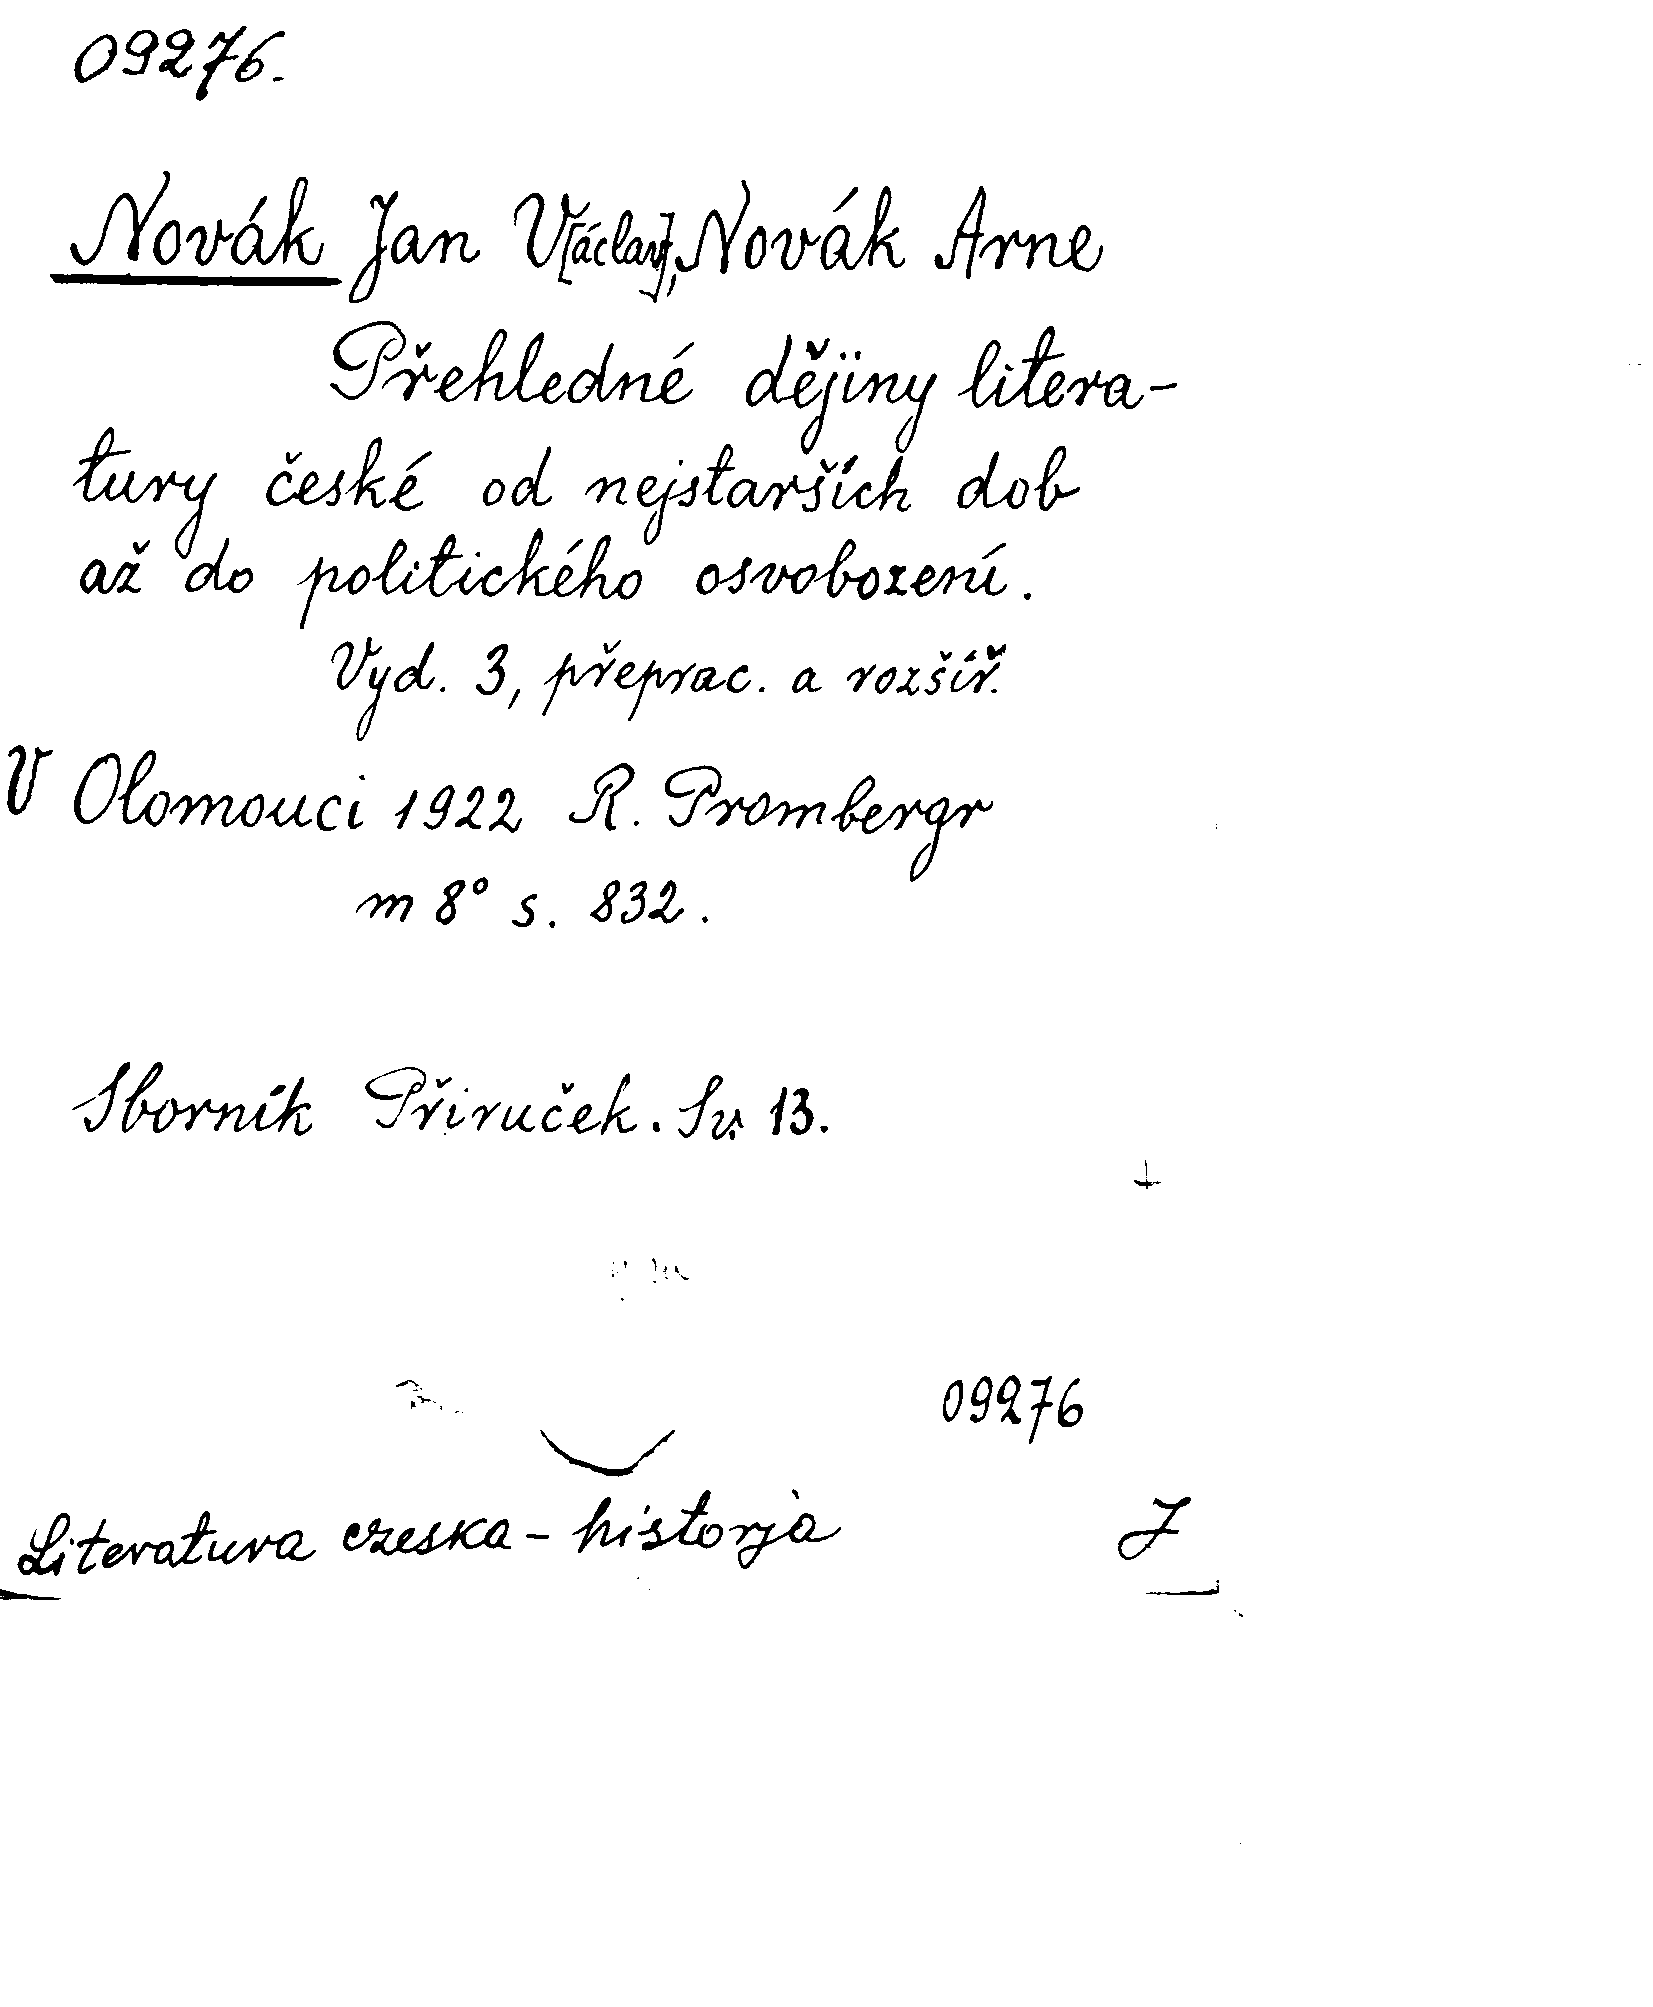 09276.
Novák Jan V[áclav], Novák Arne
Přehledné dějiny litera-
tury české od nejstarších dob
až do politického osvobození.
Vyd. 3, přeprac. a rozšíř.
V Olomouci 1922 R. Prombergr
m 8° s. 832.
Sborník Přiruček. Sv. 13.
09276
Literatura czeska - historja J